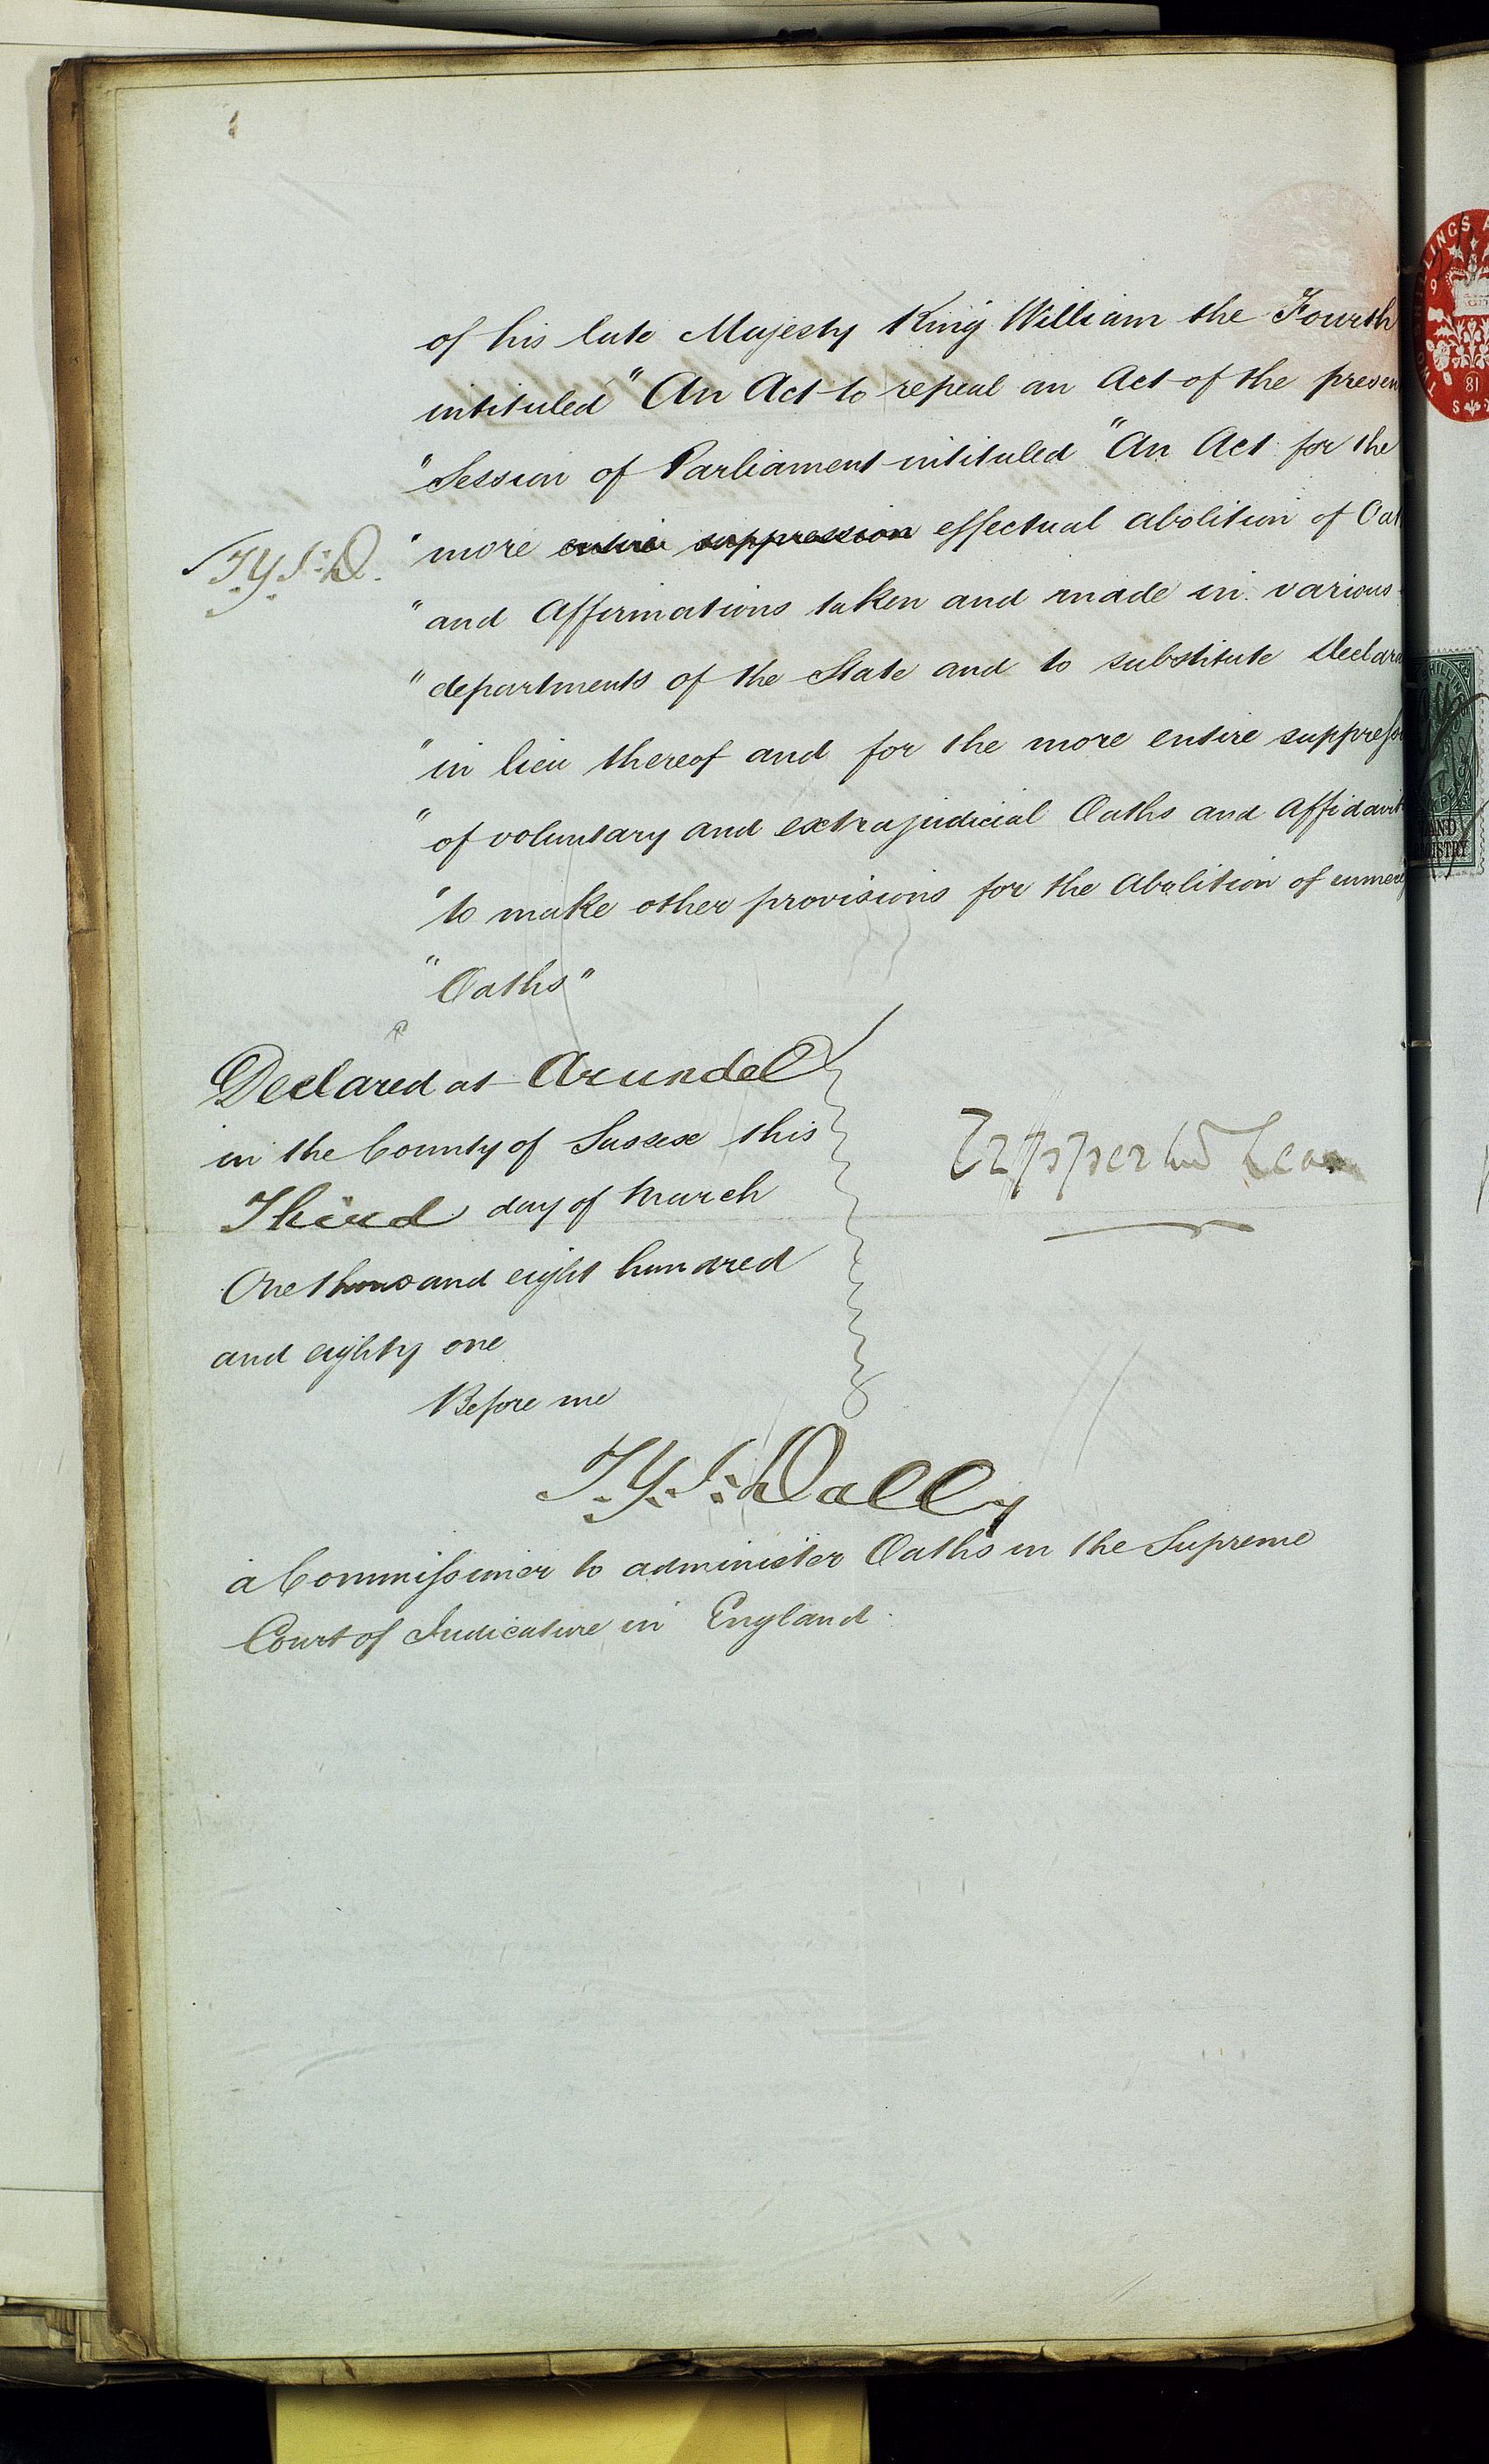 of his late Majesty King William the Fourth
intituled "An Act to repeal an Act of the presen
"Session of Parliament intituled "An Act for the
T.Y.S:D.
"more entire suppression effectual abolition of Oat
"and Affirmations taken and made in various
"departments of the State and to substitute Declara
"in lieu thereof and for the more entire suppressio
"of voluntary and extrajudicial Oaths and Affidavit
"to make other provisions for the Abolition of
"Oaths"
Declared at Arundel
in the County of Sussex this
Third day of March
One thousand eight hundred
and eighty one
Before me
T.Y.S:Dally
a Commissioner to administer Oaths in the Supreme
Court of Judicature in England.
LINGS
81
AND